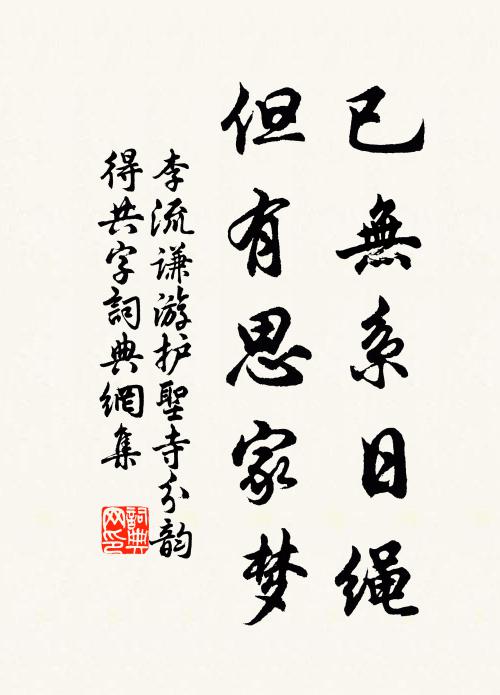 已無系日绳
但有思家梦
李流谦游护聖寺分韵
得共字詞典網集
詞典网印